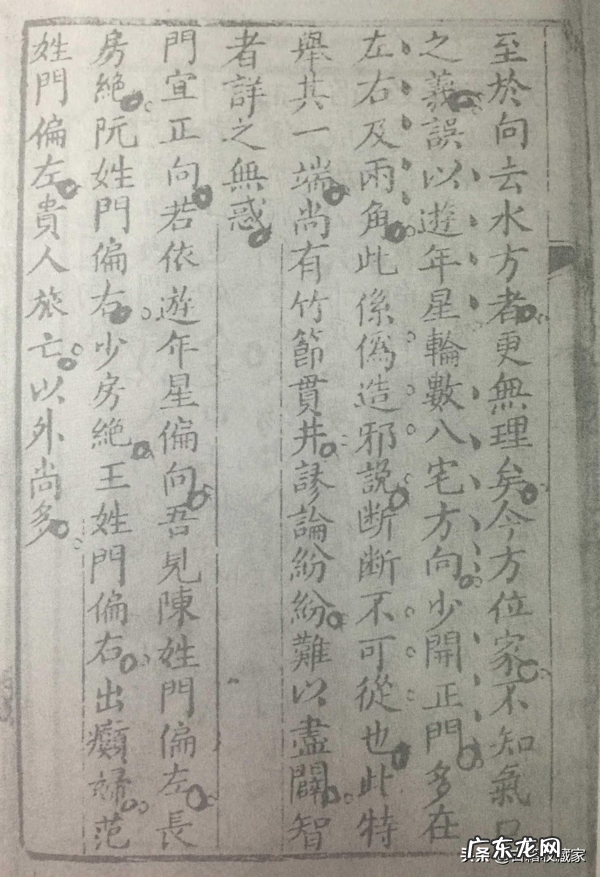 至於向去水方者更無理矣今方位家不知氣口
之義誤以遊年星輪數八宅方向少開正門多在
左右及兩角此係偽造邪說断断不可從也此特
舉其一端尚有竹節貫井謬論紛紛難以盡闢智
者詳之無惑
門宜正向若依遊年星偏向吾見陳姓門偏左長
房絶阮姓門偏右少房絶王姓門偏右出癲婦范
姓門偏左貴人旅亡以外尚多
广东龙网
头条